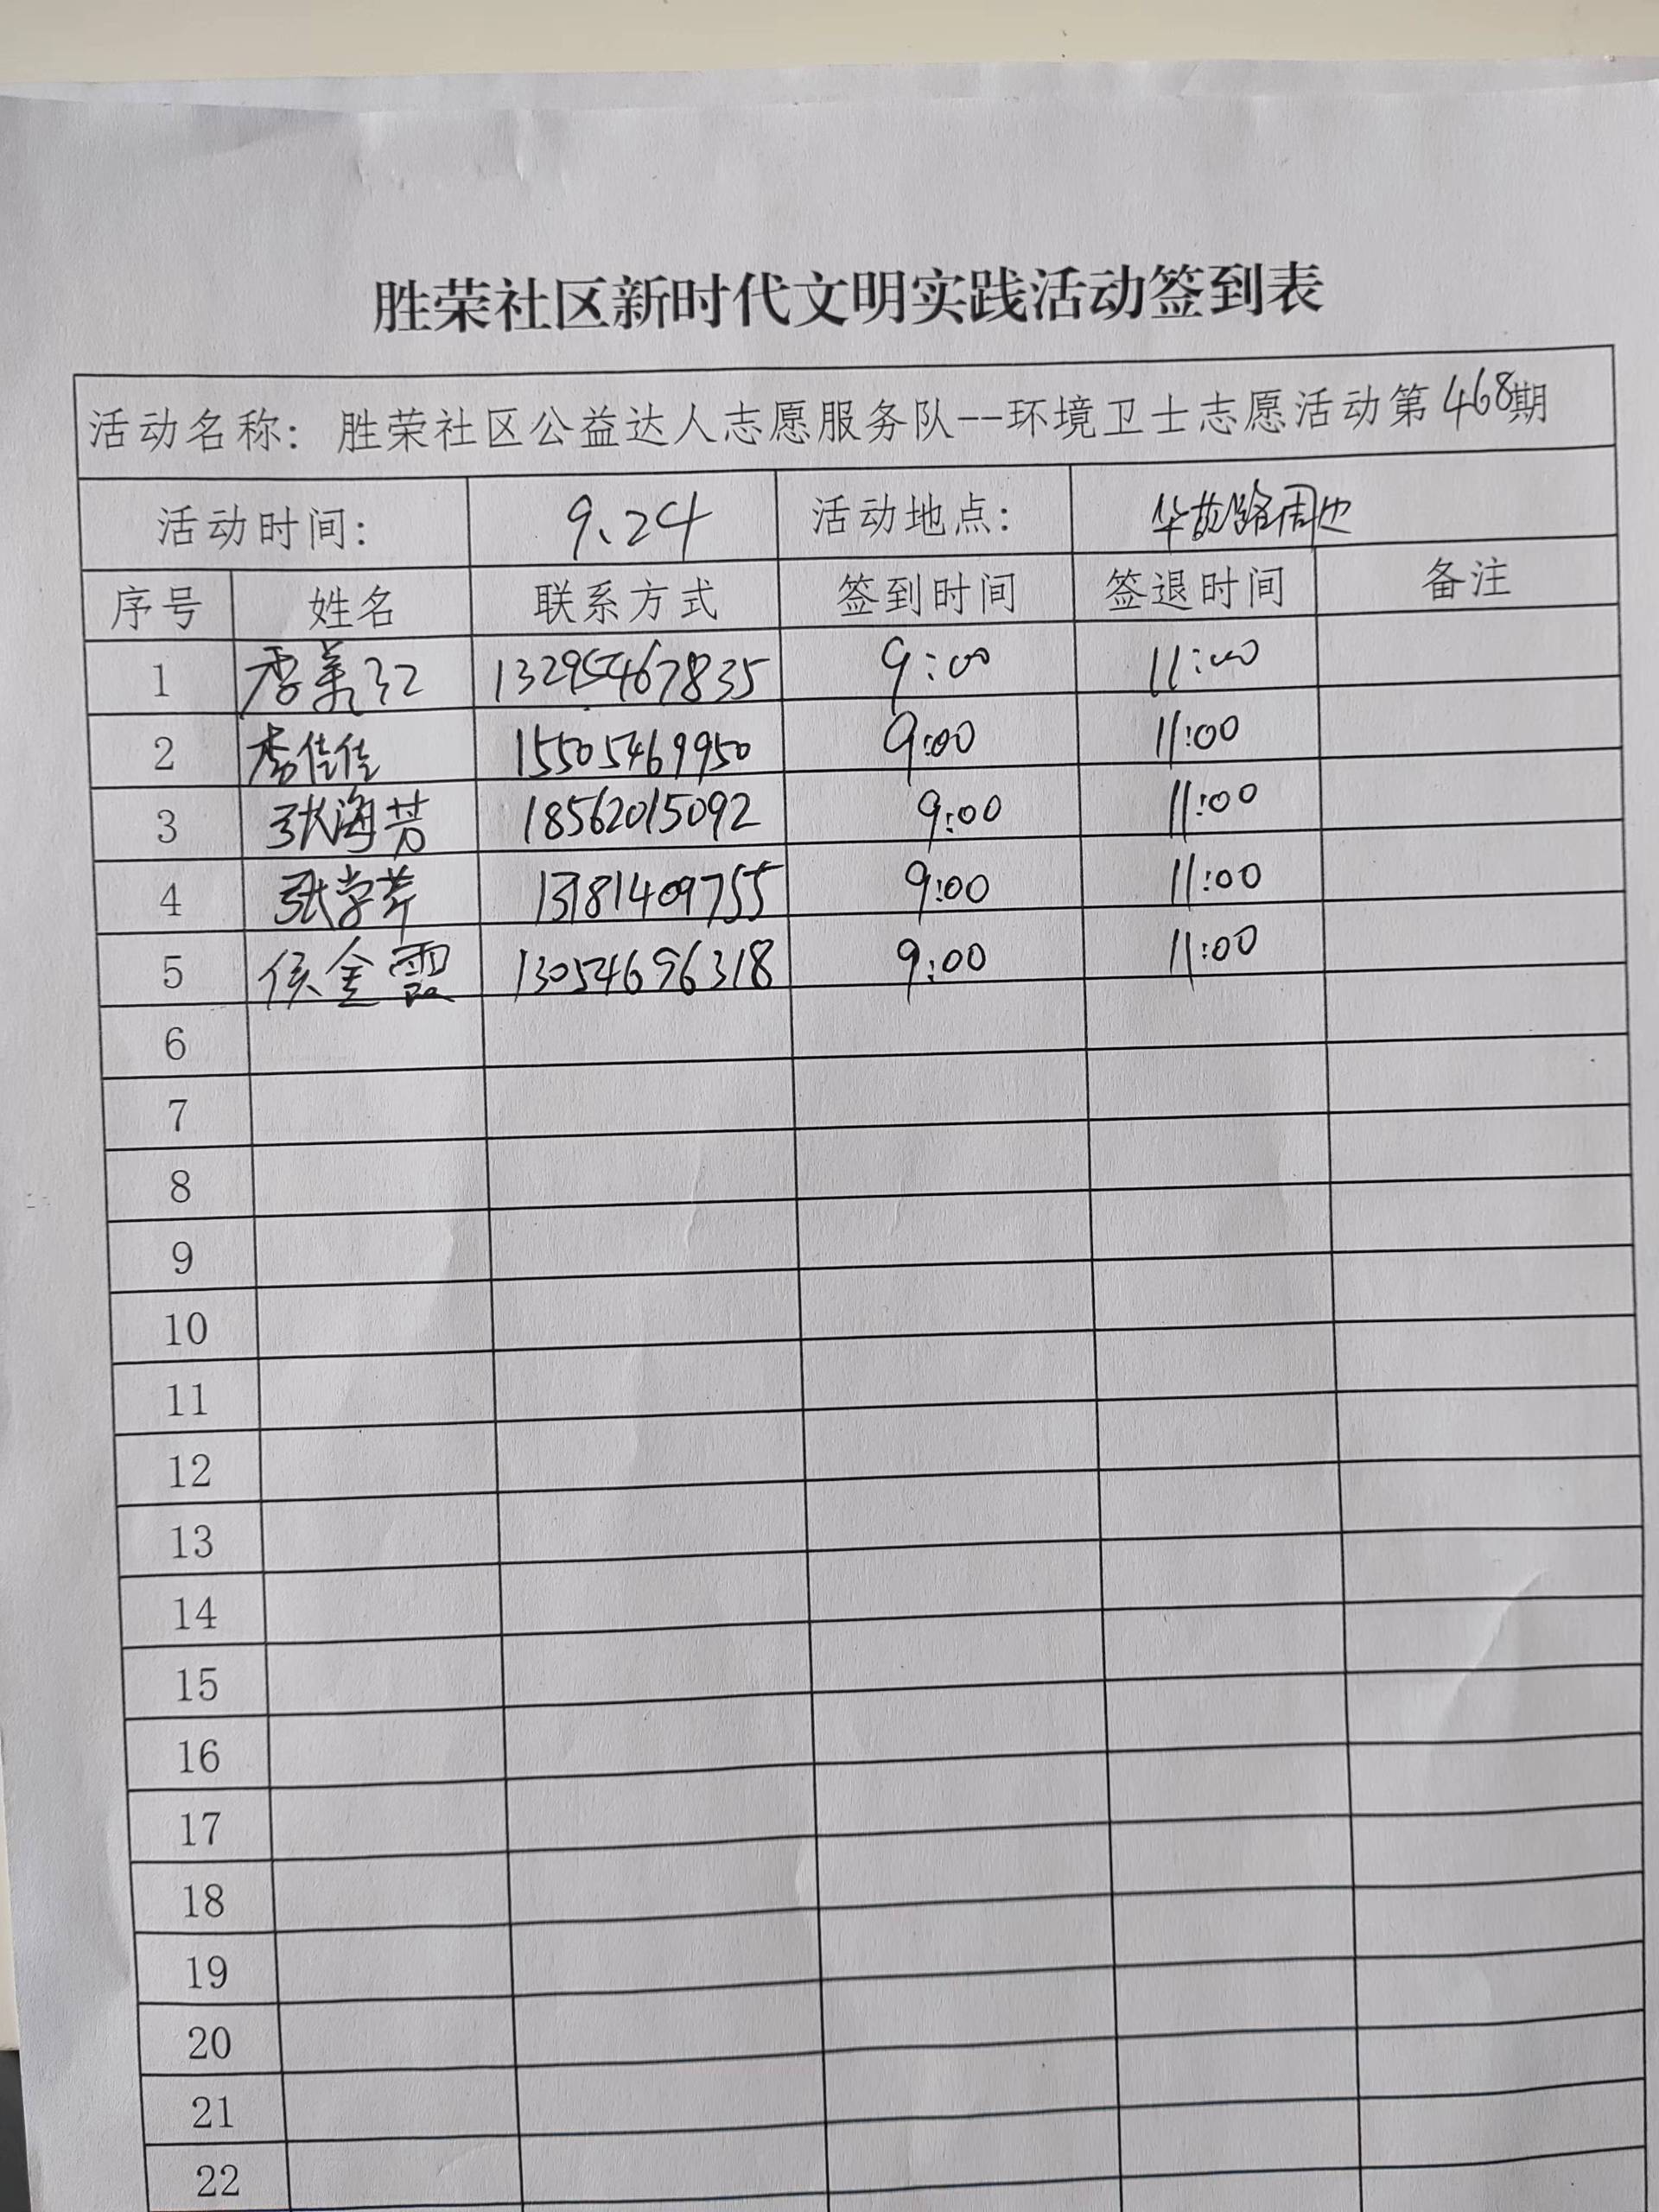 胜荣社区新时代文明实践活动签到表
活动名称：胜荣社区公益达人志愿服务队--环境卫士志愿活动第468期
活动时间： 9.24 活动地点： 华苑路周边
序号 姓名 联系方式 签到时间 签退时间 备注
1 李美红 13295467835 9:00 11:00
2 李佳佳 15505469950 9:00 11:00
3 张海芳 18562015092 9:00 11:00
4 张学芹 13181409755 9:00 11:00
5 侯金霞 13054696318 9:00 11:00
6
7
8
9
10
11
12
13
14
15
16
17
18
19
20
21
22